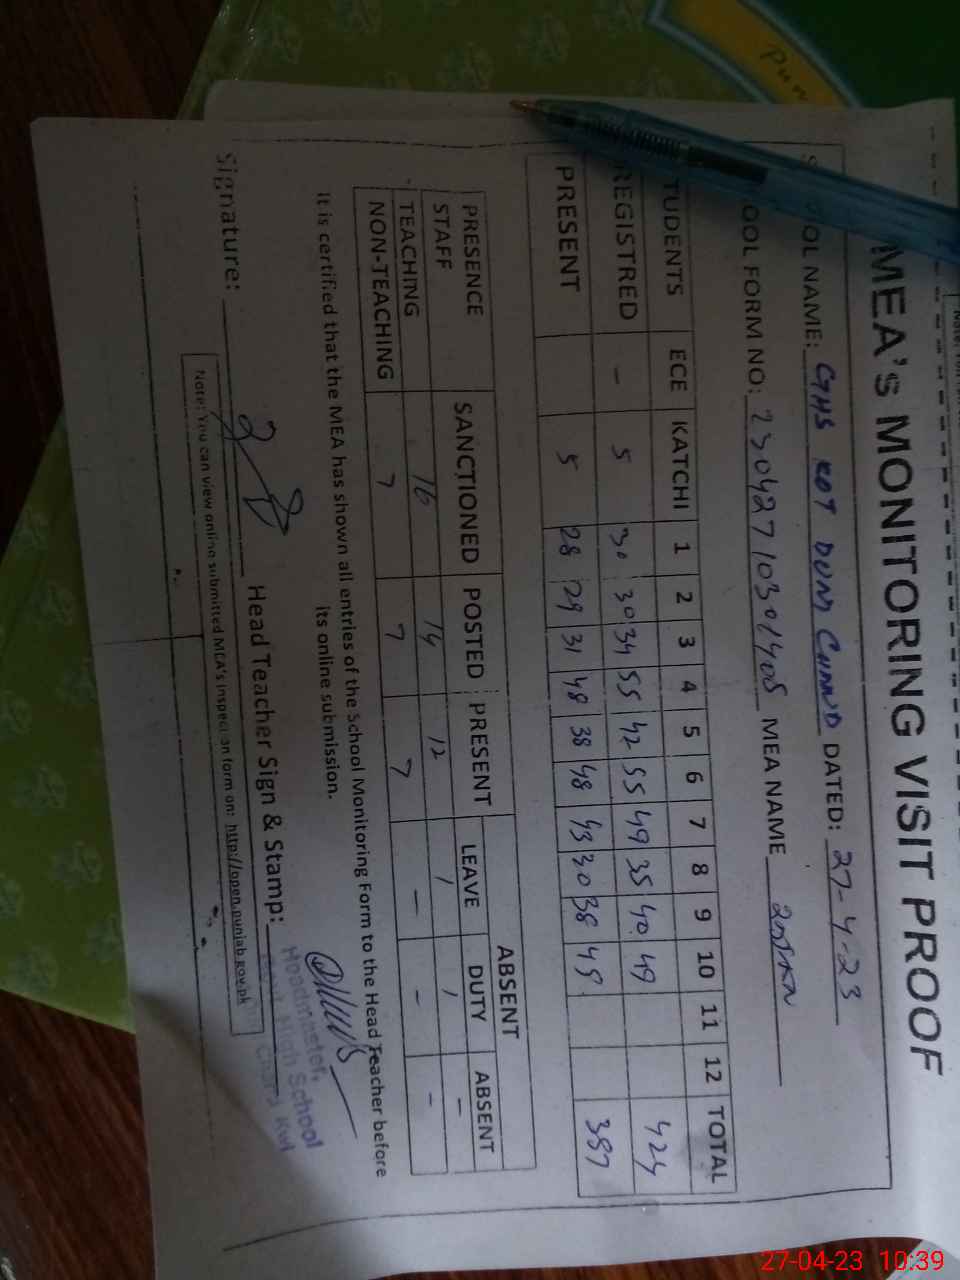 MEA's MONITORING VISIT PROOF
OOL NAME: GHS KOT DUNI CHAND DATED: 27-4-23
OOL FORM NO: 23042710301405 MEA NAME
TUDENTS ECE KATCHI 1 2 3 4 5 6 7 8 9 10 11 12 TOTAL
REGISTRED - 5 30 30 34 55 42 55 49 35 40 49 424
PRESENT 5 28 29 31 48 38 48 43 30 38 49
ABSENT
PRESENCE SANCTIONED POSTED PRESENT LEAVE DUTY ABSENT
STAFF
TEACHING 16 14 12 1 1 -
NON-TEACHING 7 7 7 - - -
It is certified that the MEA has shown all entries of the School Monitoring Form to the Head Teacher before
its online submission.
Signature: Head Teacher Sign & Stamp:
Headmaster,
High School
Note: You can view online submitted MEA's inspection form on: http://open.punjab.gov.pk
Pun
27-04-23 10:39